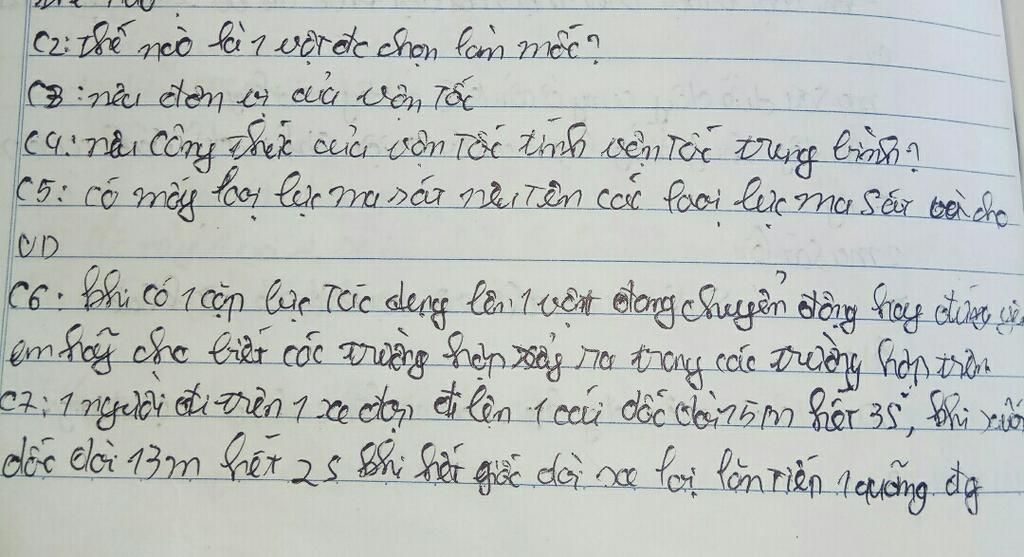 C2: thế nào là 1 vật đc chọn làm mốc?
C3: nêu đơn vị của vận tốc
C4: nêu công thức của vận tốc tính vận tốc trung bình?
C5: có mấy loại lực ma sát nêu tên các loại lực ma sát và cho
VD
C6: khi có 1 cặp lực tác dụng lên 1 vật đang chuyển động hay đứng yên
em hãy cho biết các trường hợp xảy ra trong các trường hợp trên
C7: 1 người đi trên 1 xe đạp đi lên 1 cái dốc dài 15m hết 3s, khi xuống
dốc dài 13m hết 2s khi hết giốc dài xe lại lăn tiến 1 quãng đg